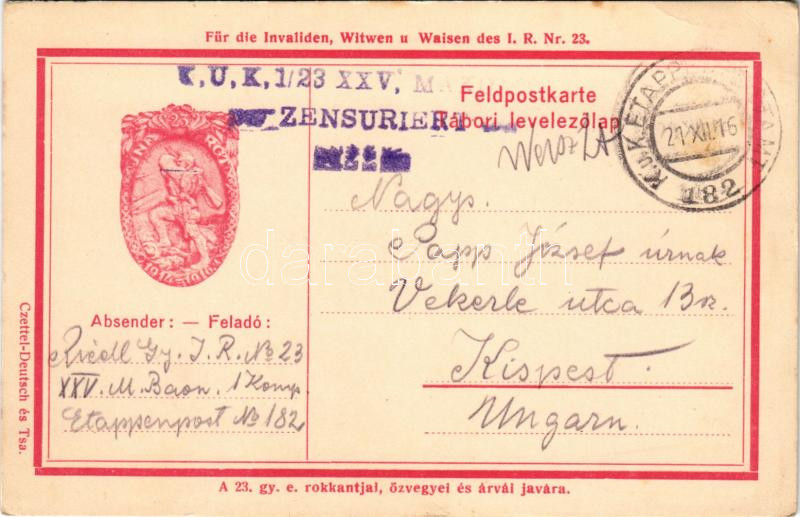 Für die Invaliden, Witwen u Waisen des I. R. Nr. 23.
K.U.K. 1/23 XXV. M
ZENSURIERT
Feldpostkarte
Tábori levelezőlap
K.u.K. ETAPP
21 XII. 16
182
23
1914-1916
Nagys.
Papp József úrnak
Vekerle utca 13
Kispest.
Ungarn.
Absender: — Feladó:
Riedl Gy. I. R. No 23
XXV. M. Baon. 1 Komp.
Etappenpost No 182
Czettel-Deutsch és Tsa.
A 23. gy. e. rokkantjai, özvegyei és árvái javára.
darabanth